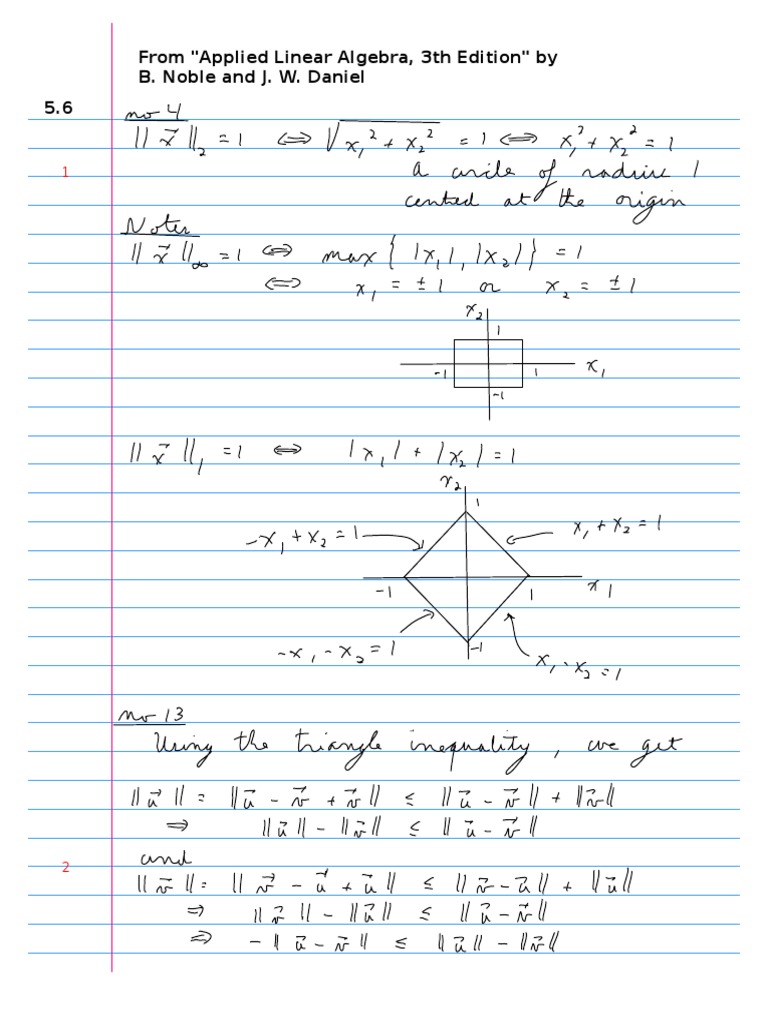 From "Applied Linear Algebra, 3th Edition" by
B. Noble and J. W. Daniel
5.6
no 4
‖x⃗‖₂ = 1 ⇔ √(x₁² + x₂²) = 1 ⇔ x₁² + x₂² = 1
1
a circle of radius 1
centred at the origin
Notes
‖x⃗‖∞ = 1 ⇔ max{|x₁|, |x₂|} = 1
⇔ x₁ = ±1 or x₂ = ±1
x₂
1
-1 1 x₁
-1
‖x⃗‖₁ = 1 ⇔ |x₁| + |x₂| = 1
x₂
1
-x₁ + x₂ = 1 x₁ + x₂ = 1
-1 1 x1
-x₁ - x₂ = 1 -1 x₁ - x₂ = 1
no 13
Using the triangle inequality, we get
‖u⃗‖ = ‖u⃗ - v⃗ + v⃗‖ ≤ ‖u⃗ - v⃗‖ + ‖v⃗‖
⇒ ‖u⃗‖ - ‖v⃗‖ ≤ ‖u⃗ - v⃗‖
and
2
‖v⃗‖ = ‖v⃗ - u⃗ + u⃗‖ ≤ ‖v⃗ - u⃗‖ + ‖u⃗‖
⇒ ‖v⃗‖ - ‖u⃗‖ ≤ ‖u⃗ - v⃗‖
⇒ -‖u⃗ - v⃗‖ ≤ ‖u⃗‖ - ‖v⃗‖